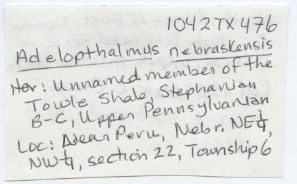 1042TX476
Adelopthalmus nebraskensis
Hor: Unnamed member of the
Towle Shale, Stephanian
B-C, Upper Pennsylvanian
Loc: Near Peru, Nebr. NE¼,
NW¼, section 22, Township 6